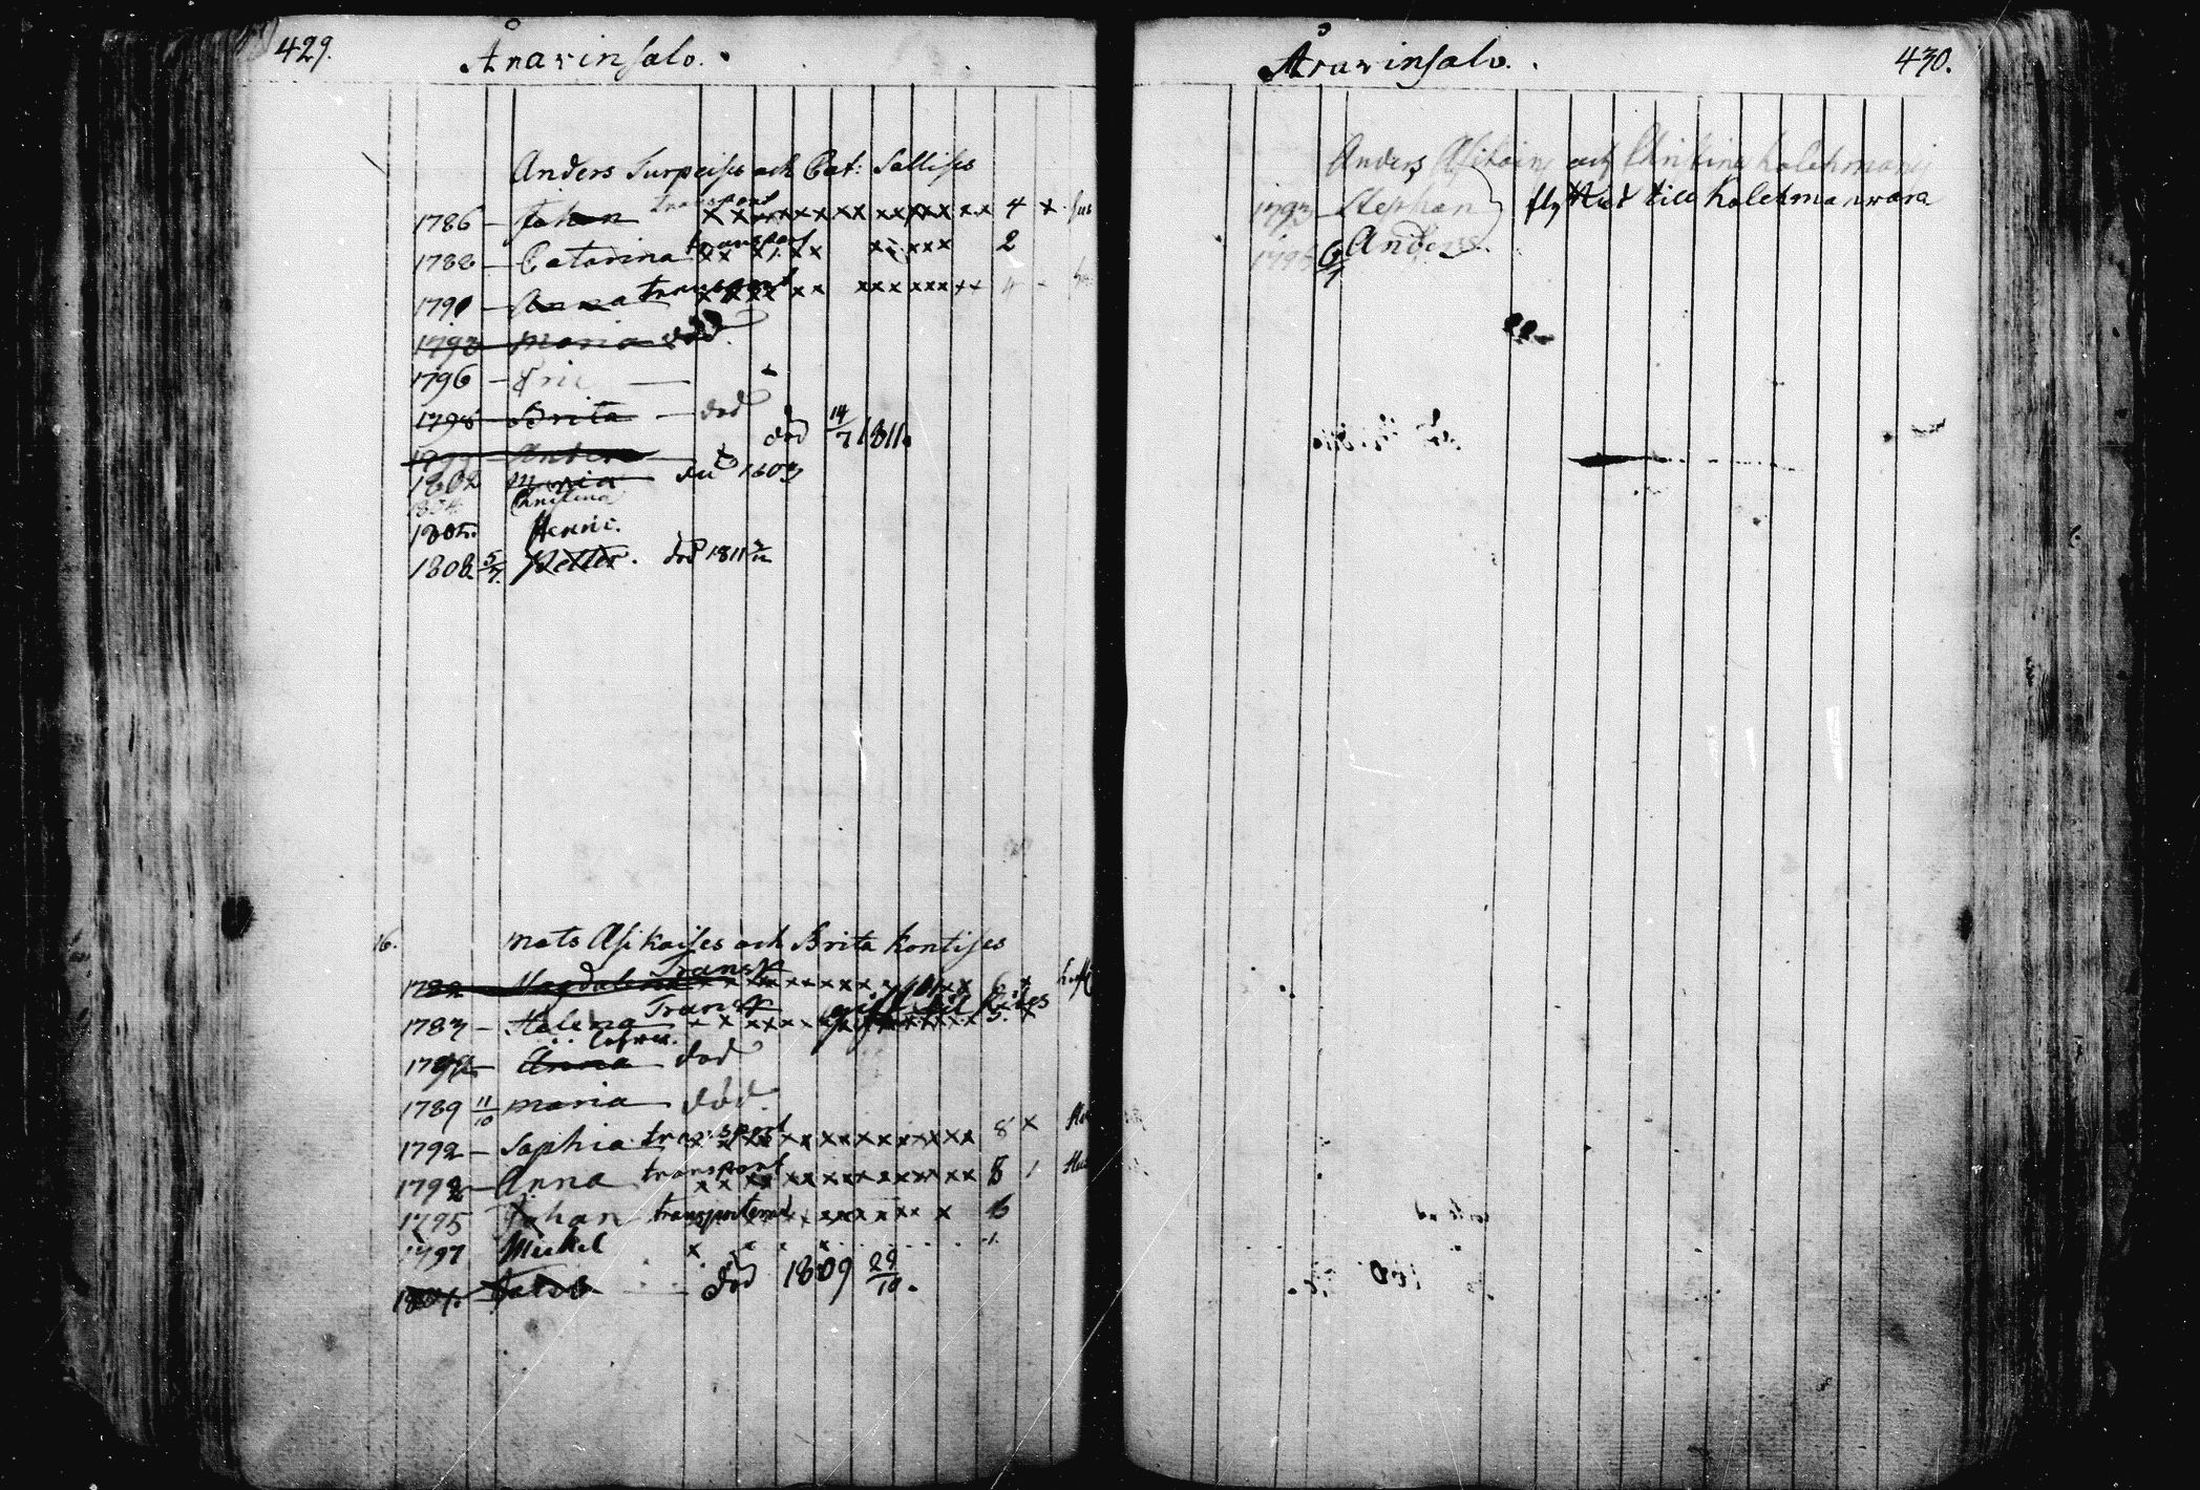 429.
Åravinsalo.
Anders Turpeises och Cat: Sallises
1786 – Johan transport xx xxxxxxxx xxxxx xx 4 x
1788 – Catarina transport xx xx xx xxxxx 2
1790 – Anna transport xxxx xx xxxxxxx 4
1793 Maria död.
1796 – Eric —
1798 Brita — död
Anders — död 14/7 1811.
1802 Maria död 1803
Christina
1805. Henric.
1808. 5/7. Petter. död 1811
16. Mats Asikaises och Brita Kontises
1782 Magdalena Transp 6 x
1783 – Helena Transp gift till Kides 5. x
Anna död
1789 11/10 Maria död.
1792 – Sophia transport xxxx xxxxxxxxxxx 8 x
1792 – Anna transport xxxx xxxxxxxxxx 8
1795 Johan transporterad 6
1797 Mickel x x x x
Jacob — död 1809 29/10.
430.
Åravinsalo.
Anders Asikain och Christina Kolehmain
1793 – Stephan flyttad till Kolehmanvara
1795 6/7 Anders.